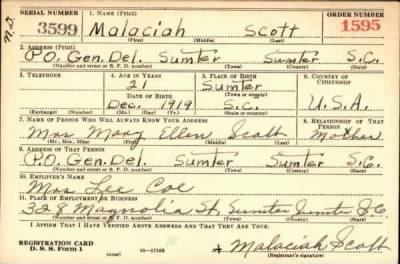 SERIAL NUMBER 1. NAME (Print) ORDER NUMBER
N.J. 3599 Malaciah Scott 1595
(First) (Middle) (Last)
2. ADDRESS (Print)
P.O. Gen. Del. Sumter Sumter S.C.
(Number and street or R. F. D. number) (Town) (County) (State)
3. TELEPHONE 4. AGE IN YEARS 5. PLACE OF BIRTH 6. COUNTRY OF CITIZENSHIP
21 Sumter
DATE OF BIRTH (Town or county)
Dec. 1919 S.C. U.S.A.
(Exchange) (Number) (Mo.) (Day) (Yr.) (State or country)
7. NAME OF PERSON WHO WILL ALWAYS KNOW YOUR ADDRESS 8. RELATIONSHIP OF THAT PERSON
Mrs Mary Ellen Scott Mother
(Mr., Mrs., Miss) (First) (Middle) (Last)
9. ADDRESS OF THAT PERSON
P.O. Gen. Del. Sumter Sumter S.C.
(Number and street or R. F. D. number) (Town) (County) (State)
10. EMPLOYER'S NAME
Mrs Lee Coe
11. PLACE OF EMPLOYMENT OR BUSINESS
328 Magnolia St. Sumter Sumter S.C.
(Number and street or R. F. D. number) (Town) (County) (State)
I AFFIRM THAT I HAVE VERIFIED ABOVE ANSWERS AND THAT THEY ARE TRUE.
REGISTRATION CARD
D. S. S. Form 1 (over) 16—17105 Malaciah Scott
(Registrant's signature)